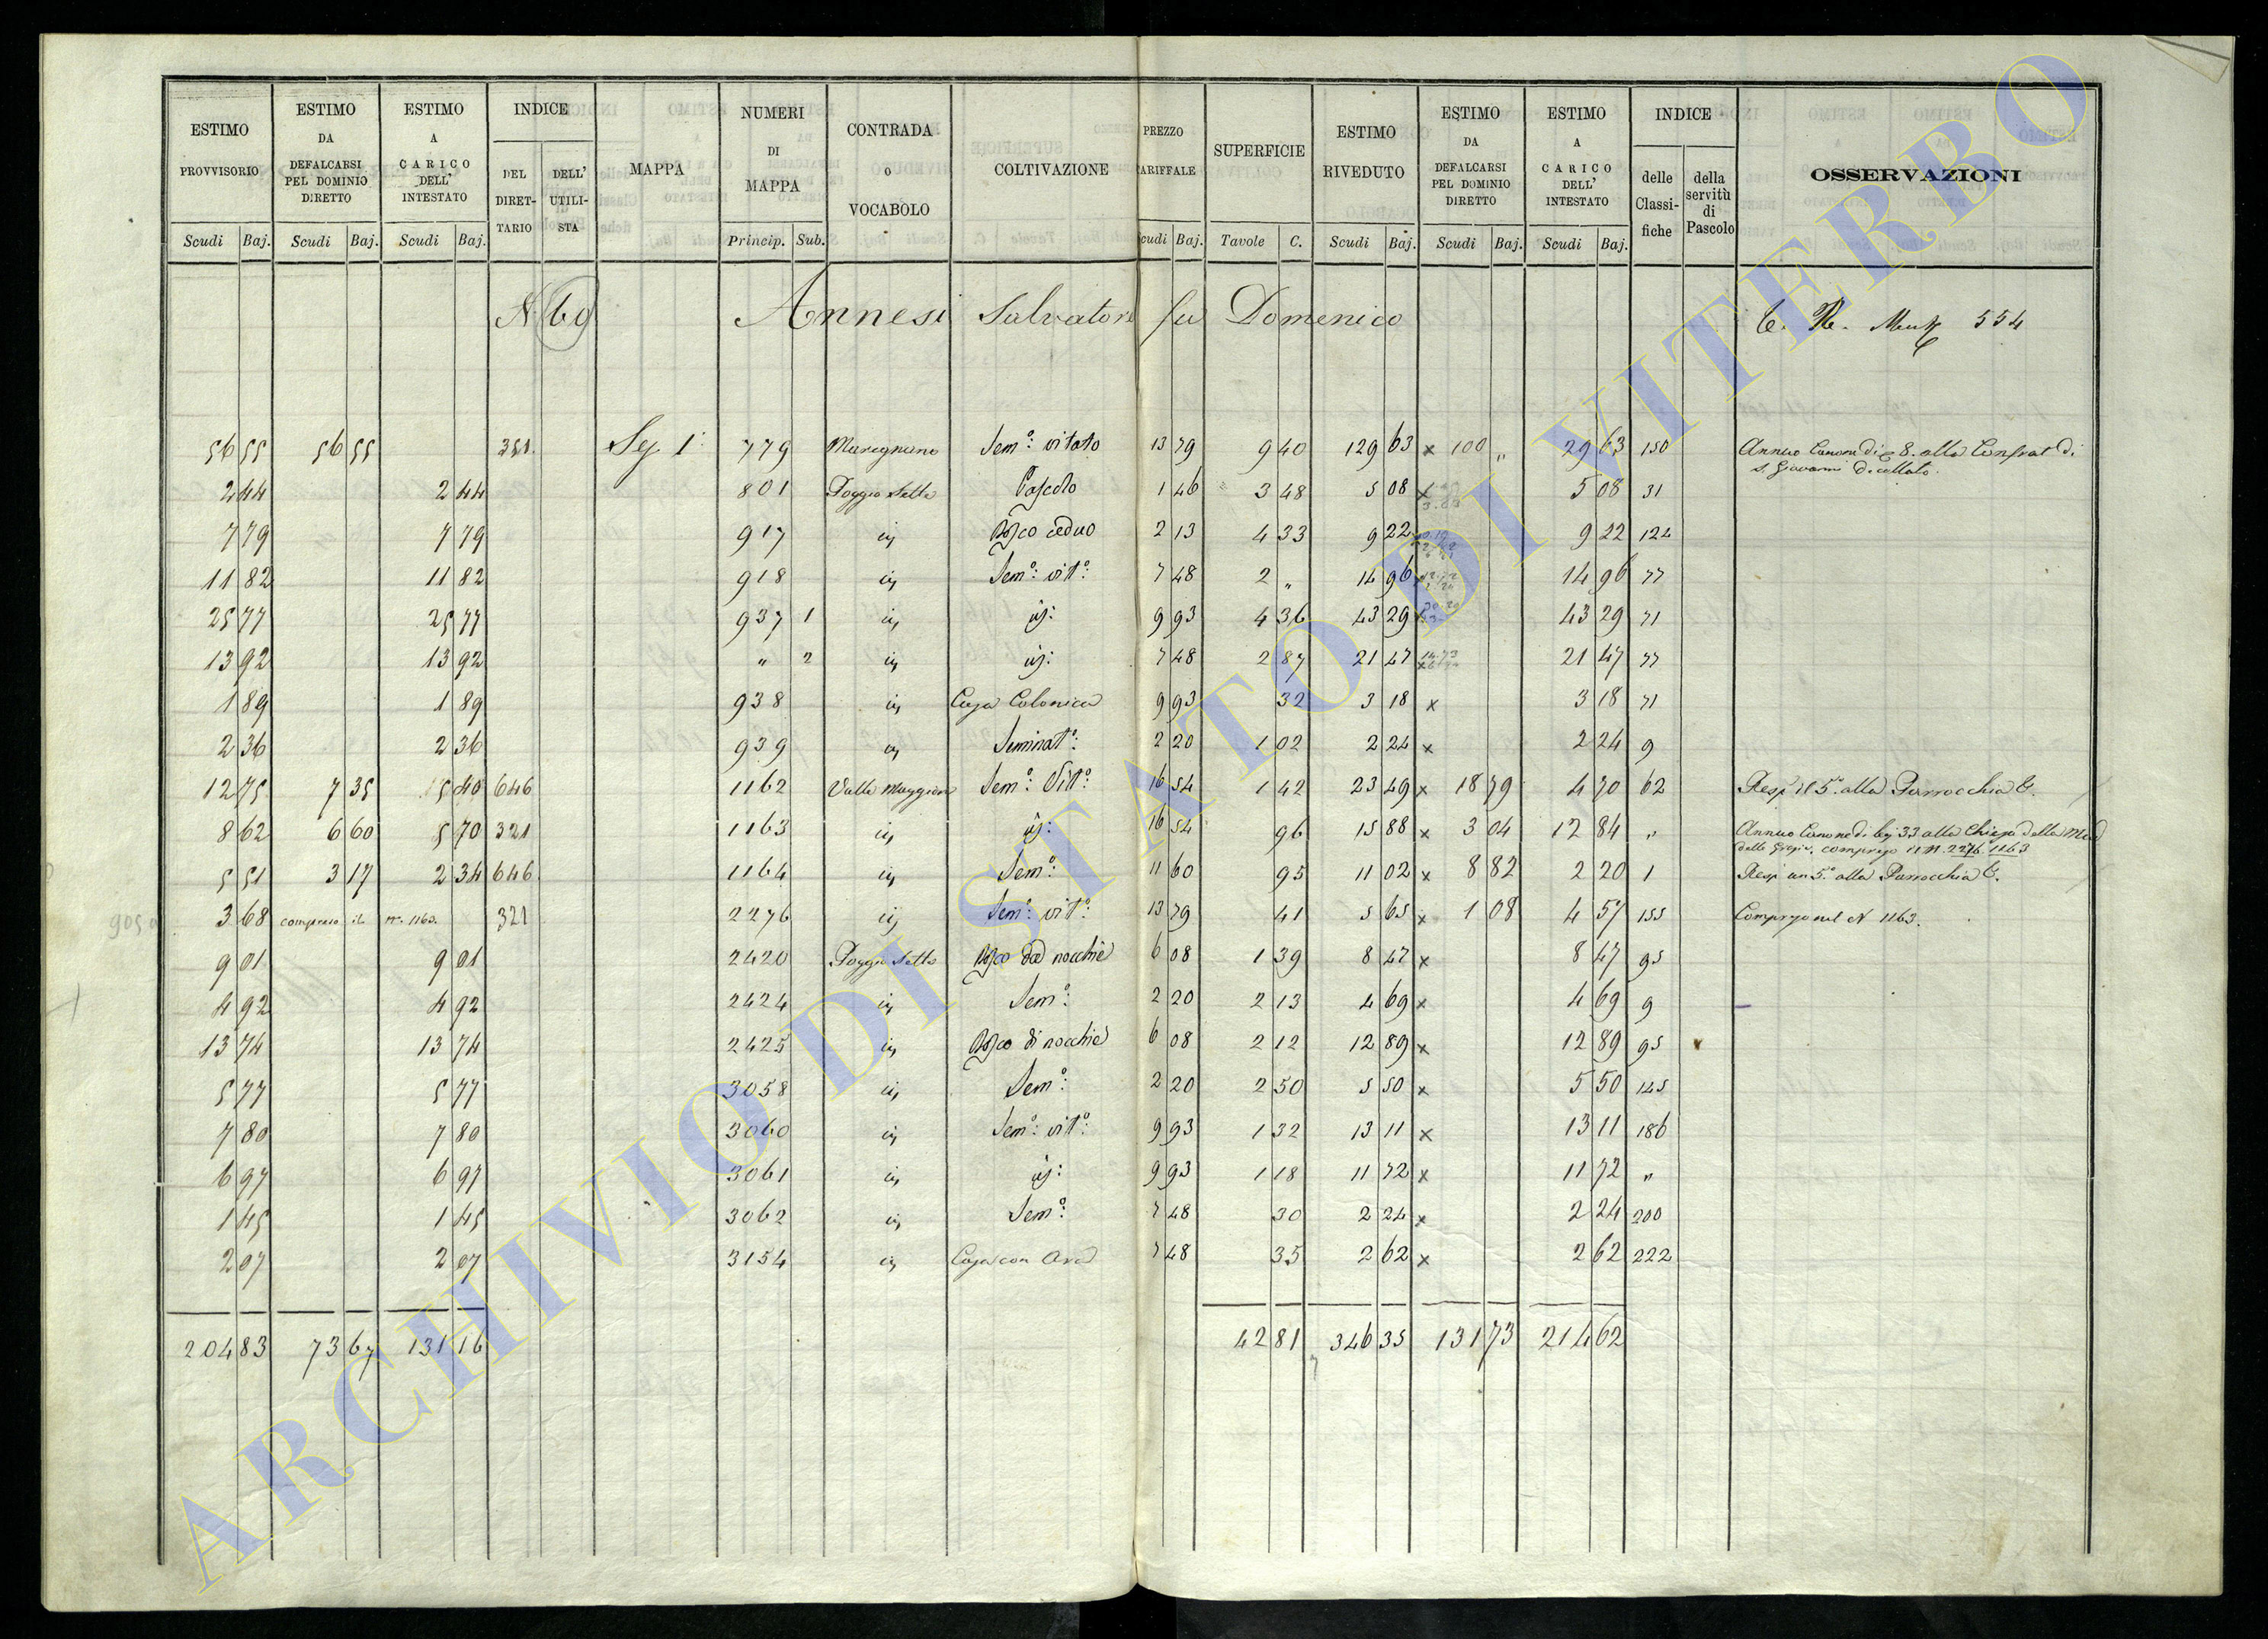 ESTIMO PROVVISORIO | ESTIMO DA DEFALCARSI PEL DOMINIO DIRETTO | ESTIMO A CARICO DELL' INTESTATO | INDICE DEL DIRETTARIO | DELL' UTILISTA | MAPPA | NUMERI DI MAPPA | CONTRADA O VOCABOLO | COLTIVAZIONE | PREZZO TARIFFALE | SUPERFICIE | ESTIMO RIVEDUTO | ESTIMO DA DEFALCARSI PEL DOMINIO DIRETTO | ESTIMO A CARICO DELL' INTESTATO | INDICE delle Classifiche | della servitù di Pascolo | OSSERVAZIONI
Scudi Baj. Scudi Baj. Scudi Baj. Princip. Sub. Scudi Baj. Tavole C. Scudi Baj. Scudi Baj. Scudi Baj.
N 69 Annesi Salvatore fu Domenico 554
56 55 56 55 351 Sez 1ª 779 Marignano Sem.º vitato 13 79 9 40 129 63 x 100 " 29 63 150 Annuo Canone di 8. alla Confrat di
S. Giovanni Decollato.
2 44 2 44 801 Poggio Sette Pascolo 1 46 3 48 5 08 x 5 08 31
7 79 7 79 917 id Bosco ceduo 2 13 4 33 9 22 9 22 124
11 82 11 82 918 id Sem.º vit.º 7 48 2 " 14 96 14 96 77
25 77 25 77 937 1 id id: 9 93 4 36 43 29 43 29 71
13 92 13 92 " 2 id id: 7 48 2 87 21 47 21 47 77
1 89 1 89 938 id Casa Colonica 9 93 32 3 18 x 3 18 71
2 36 2 36 939 id Seminat.º 2 20 1 02 2 24 x 2 24 9
12 75 7 35 5 40 646 1162 Valle Maggiore Sem.º Vit.º 16 54 1 42 23 49 x 18 79 4 70 62 Resp il 5.º alla Parrocchia
8 62 6 60 5 70 321 1163 id id: 16 54 96 15 88 x 3 04 12 84 " Annuo Canone di 33 alla Chiesa della Mad
delle Grazie. compreso il N. 2276. 1163
5 51 3 17 2 34 646 1164 id Sem.º 11 60 95 11 02 x 8 82 2 20 1 Resp un 5.º alla Parrocchia
3 68 compreso il nº. 1163. 321 2276 id Sem.º vit.º 13 79 41 5 65 x 1 08 4 57 155 Compreso nel N 1163.
9 01 9 01 2420 Poggio Sette Bosco da nocchie 6 08 1 39 8 47 x 8 47 95
4 92 4 92 2424 id Sem.º 2 20 2 13 4 69 x 4 69 9
13 74 13 74 2425 id Bosco di nocchie 6 08 2 12 12 89 x 12 89 95
5 77 5 77 3058 id Sem.º 2 20 2 50 5 50 x 5 50 145
7 80 7 80 3060 id Sem.º vit.º 9 93 1 32 13 11 x 13 11 186
6 97 6 97 3061 id id: 9 93 1 18 11 72 x 11 72 "
1 45 1 45 3062 id Sem.º 7 48 30 2 24 x 2 24 200
2 07 2 07 3154 id Casa con Area 7 48 35 2 62 x 2 62 222
204 83 73 67 131 16 42 81 346 35 131 73 214 62
ARCHIVIO DI STATO DI VITERBO